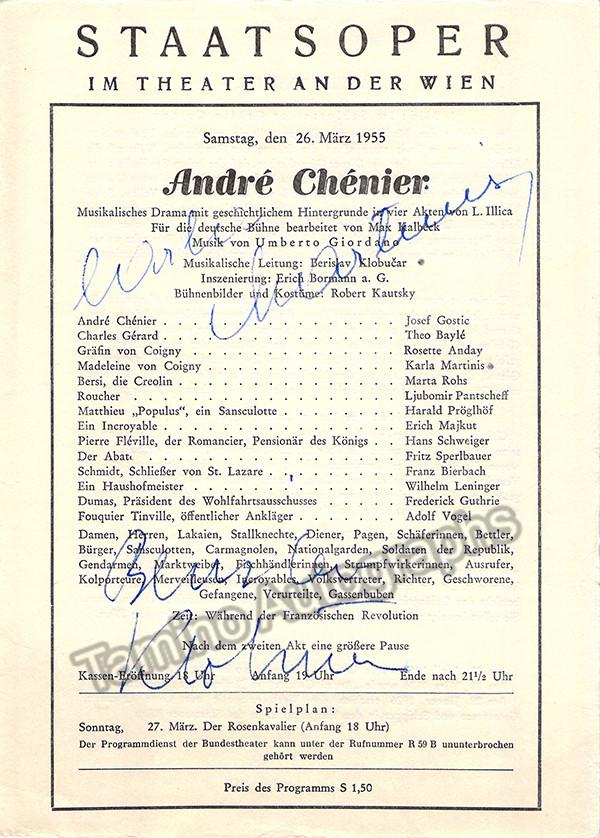 STAATSOPER
IM THEATER AN DER WIEN
Samstag, den 26. März 1955
André Chénier
Musikalisches Drama mit geschichtlichem Hintergrunde in vier Akten von L. Illica
Für die deutsche Bühne bearbeitet von Max Kalbeck
Musik von Umberto Giordano
Musikalische Leitung: Berislav Klobučar
Inszenierung: Erich Bormann a. G.
Bühnenbilder und Kostüme: Robert Kautsky
Karla Martinis
André Chénier . . . . . . . . . . . . . . . . Josef Gostic
Charles Gérard . . . . . . . . . . . . . . . . Theo Baylé
Gräfin von Coigny . . . . . . . . . . . . . . Rosette Anday
Madeleine von Coigny . . . . . . . . . . . . Karla Martinis
Bersi, die Creolin . . . . . . . . . . . . . . Marta Rohs
Roucher . . . . . . . . . . . . . . . . . . Ljubomir Pantscheff
Matthieu „Populus“, ein Sansculotte . . . . . . . Harald Pröglhöf
Ein Incroyable . . . . . . . . . . . . . . . . Erich Majkut
Pierre Fléville, der Romancier, Pensionär des Königs . . Hans Schweiger
Der Abate . . . . . . . . . . . . . . . . . Fritz Sperlbauer
Schmidt, Schließer von St. Lazare . . . . . . . . Franz Bierbach
Ein Haushofmeister . . . . . . . . . . . . . Wilhelm Leninger
Dumas, Präsident des Wohlfahrtsausschusses . . . . Frederick Guthrie
Fouquier Tinville, öffentlicher Ankläger . . . . . . Adolf Vogel
Damen, Herren, Lakaien, Stallknechte, Diener, Pagen, Schäferinnen, Bettler,
Bürger, Sansculotten, Carmagnolen, Nationalgarden, Soldaten der Republik,
Gendarmen, Marktweiber, Fischhändlerinnen, Strumpfwirkerinnen, Ausrufer,
Kolporteure, Merveilleusen, Incroyables, Volksvertreter, Richter, Geschworene,
Gefangene, Verurteilte, Gassenbuben
Zeit: Während der Französischen Revolution
Nach dem zweiten Akt eine größere Pause
Kassen-Eröffnung 18 Uhr Anfang 19 Uhr Ende nach 21½ Uhr
Tamino Autographs
Spielplan:
Sonntag, 27. März. Der Rosenkavalier (Anfang 18 Uhr)
Der Programmdienst der Bundestheater kann unter der Rufnummer R 59 B ununterbrochen
gehört werden
Preis des Programms S 1,50